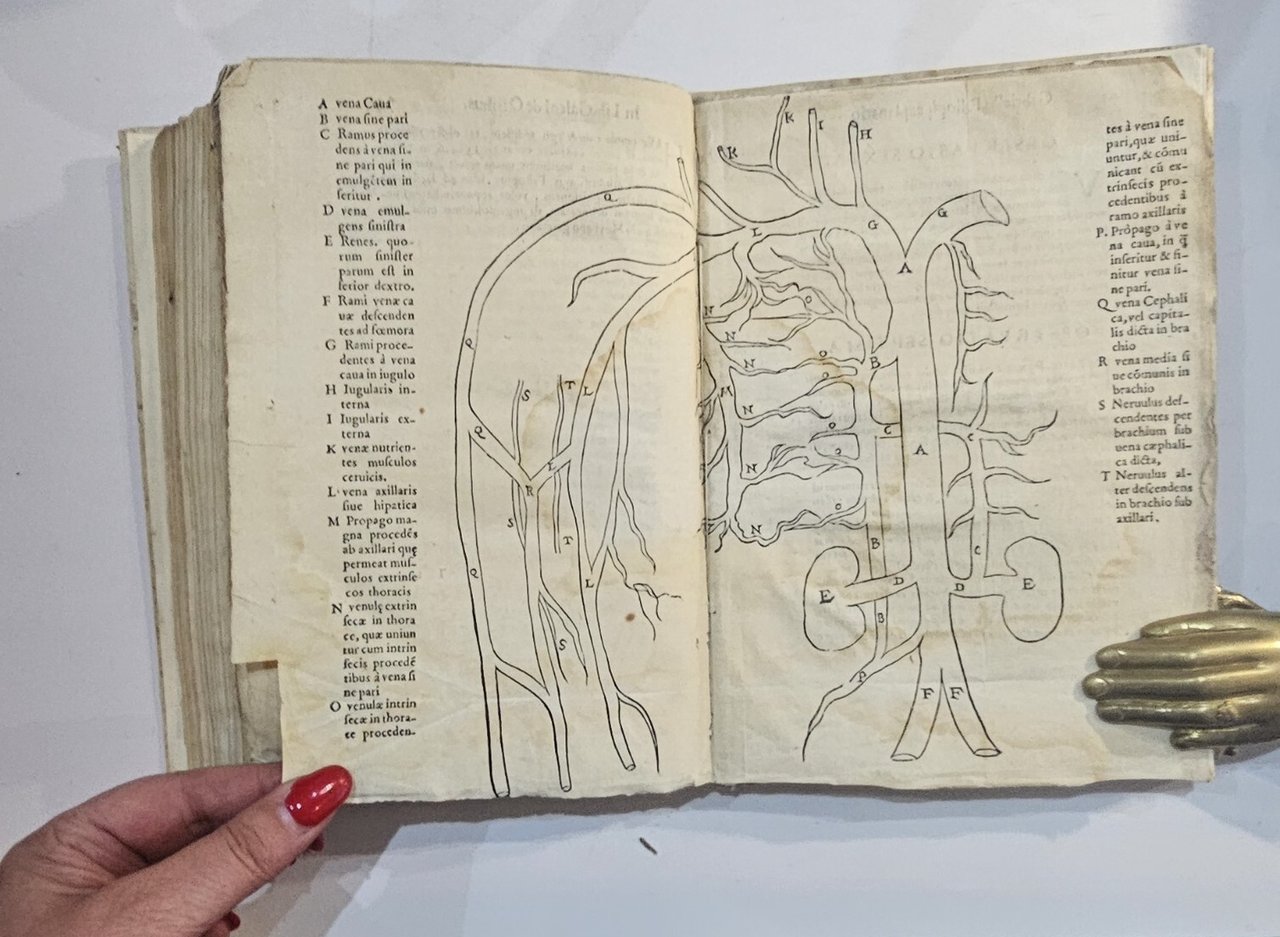 A vena Caua
B vena sine pari
C Ramus proce
dens à vena si-
ne pari qui in
emulgētem in
seritur .
D vena emul-
gens sinistra
E Renes. quo-
rum sinister
parum est in
ferior dextro.
F Rami venæ ca
uæ descenden
tes ad fœmora
G Rami proce-
dentes à vena
caua in iugulo
H Iugularis in-
terna
I Iugularis ex-
terna
K venæ nutrien-
tes musculos
ceruicis.
L vena axillaris
siue hipatica
M Propago ma-
gna procedēs
ab axillari quę
permeat mus-
culos extrinse
cos thoracis
N venulę extrin
secæ in thora
ce, quæ uniun
tur cum intrin
secis procedē
tibus à vena si
ne pari
O venulæ intrin
secæ in thora-
ce proceden-
Q
Q
Q
Q
S
T
L
R
L
S
T
L
S
K
K
I
H
G
G
L
A
N
N
N
M
N
N
N
O
O
O
O
O
O
B
C
A
C
B
C
D
D
E
E
B
P
F
F
tes à vena sine
pari, quæ uni-
untur, & cōmu
nicant cū ex-
trinsecis pro-
cedentibus à
ramo axillaris
P. Prōpago à ve
na caua, in q̄
inseritur & fi-
nitur vena si-
ne pari.
Q vena Cephali
ca, vel capita-
lis dicta in bra
chio
R vena media si
ue cōmunis in
brachio
S Neruulus des-
cendentes per
brachium sub
uena cæphali-
ca dicta,
T Neruulus al-
ter descendens
in brachio sub
axillari.